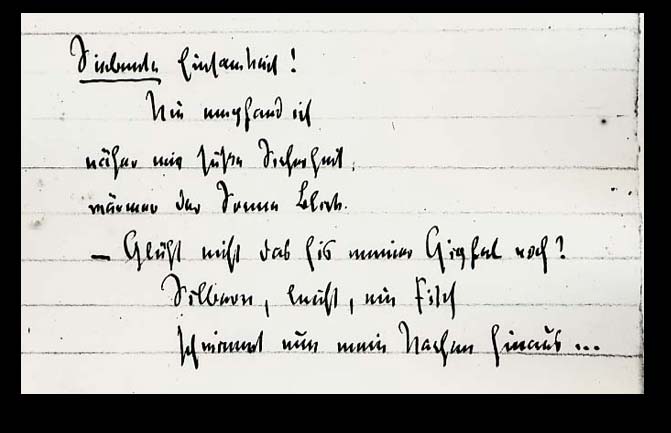 Siebente Einsamkeit!
Nie empfand ich
näher mir süße Sicherheit,
wärmer der Sonne Blick.
— Glüht nicht das Eis meiner Gipfel noch?
Silbern, leicht, ein Fisch
schwimmt nun mein Nachen hinaus...